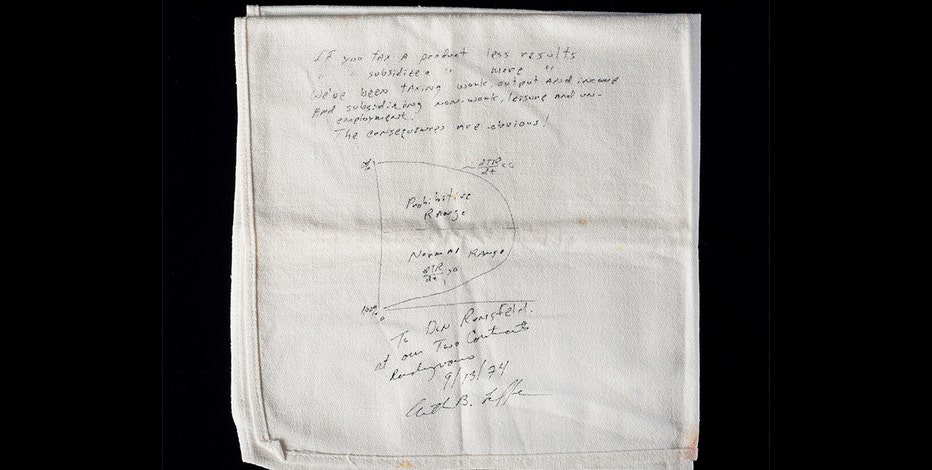 If you tax a product less results
" " subsidize a " more "
We've been taxing work, output and income
and subsidizing non-work, leisure and un-
employment.
The consequences are obvious!
dTR/dt < 0
Prohibitive
Range
Normal Range
dTR/dt > 0
100%
0
To Don Rumsfeld
at our Two Continents
Rendezvous
9/13/74
Arthur B. Laffer